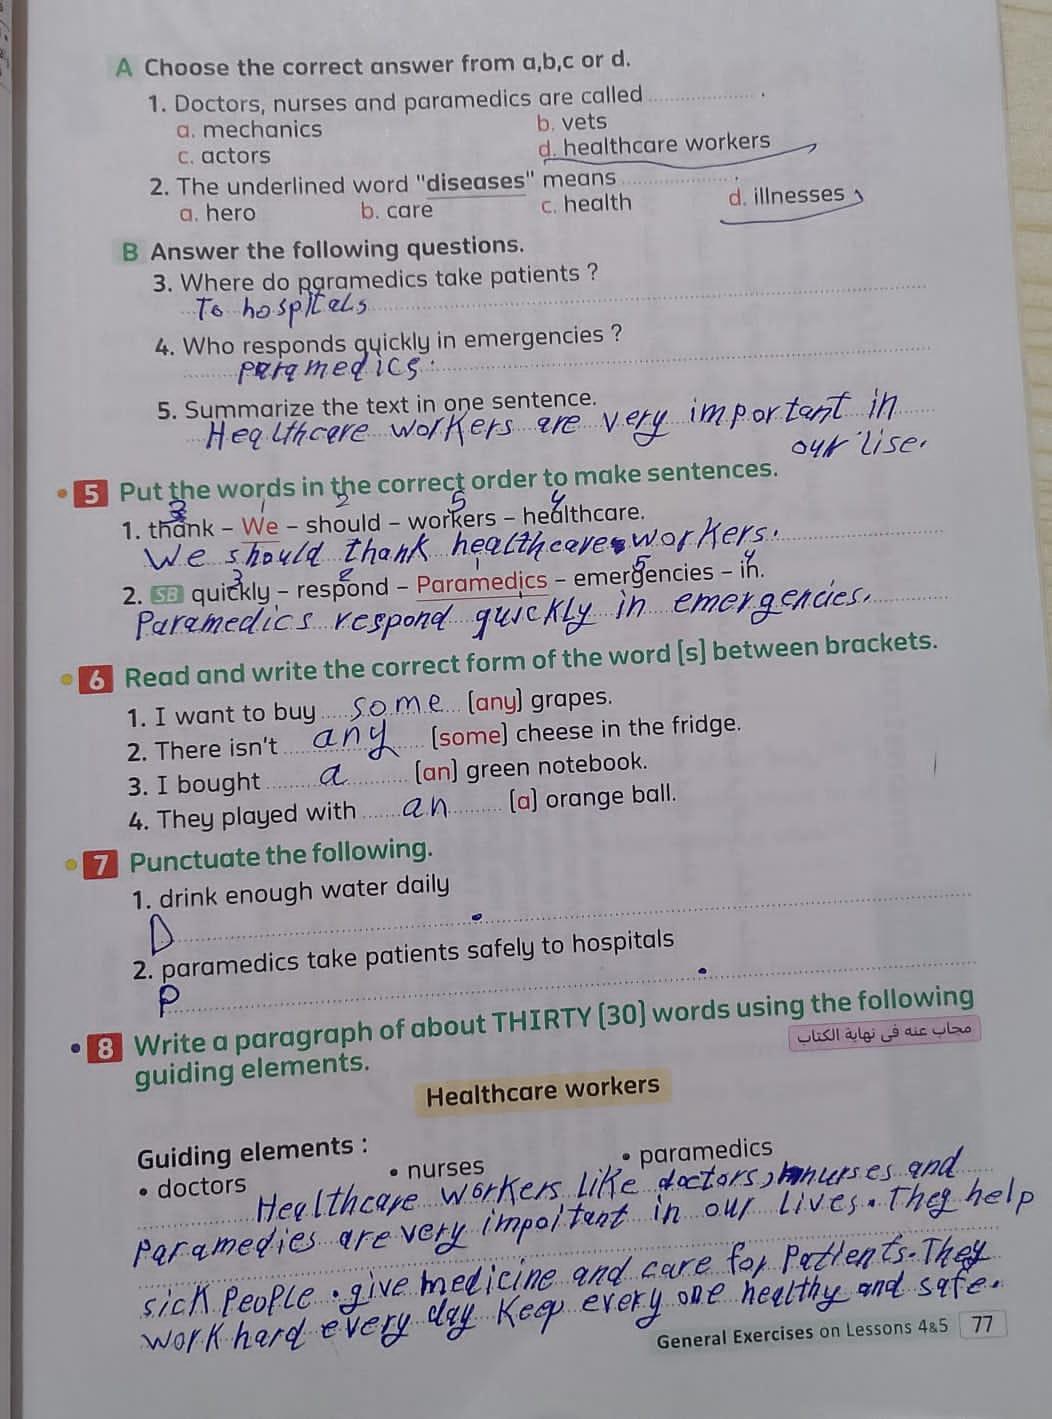 A Choose the correct answer from a,b,c or d.
1. Doctors, nurses and paramedics are called .................... .
a. mechanics b. vets
c. actors d. healthcare workers
2. The underlined word "diseases" means .................... .
a. hero b. care c. health d. illnesses
B Answer the following questions.
3. Where do paramedics take patients ?
To hospitals
4. Who responds quickly in emergencies ?
paramedics.
5. Summarize the text in one sentence.
Healthcare workers are very important in
our lise.
5 Put the words in the correct order to make sentences.
3 1 2 5 4
1. thank - We - should - workers - healthcare.
We should thank healthcare workers.
3 2 1 5 4
2. SB quickly - respond - Paramedics - emergencies - in.
Paramedics respond quickly in emergencies.
6 Read and write the correct form of the word [s] between brackets.
1. I want to buy ..... some ..... [any] grapes.
2. There isn't ..... any ..... [some] cheese in the fridge.
3. I bought ..... a ..... [an] green notebook.
4. They played with ..... an ..... [a] orange ball.
7 Punctuate the following.
1. drink enough water daily
D .
2. paramedics take patients safely to hospitals
P .
8 Write a paragraph of about THIRTY [30] words using the following
مجاب عنه فى نهاية الكتاب
guiding elements.
Healthcare workers
Guiding elements :
• doctors • nurses • paramedics
Healthcare workers like doctors, nurses and
paramedies are very impoitant in our lives. They help
sick people. give medicine and care for patients. They
work hard every day keep every one healthy and safe.
General Exercises on Lessons 4&5 77